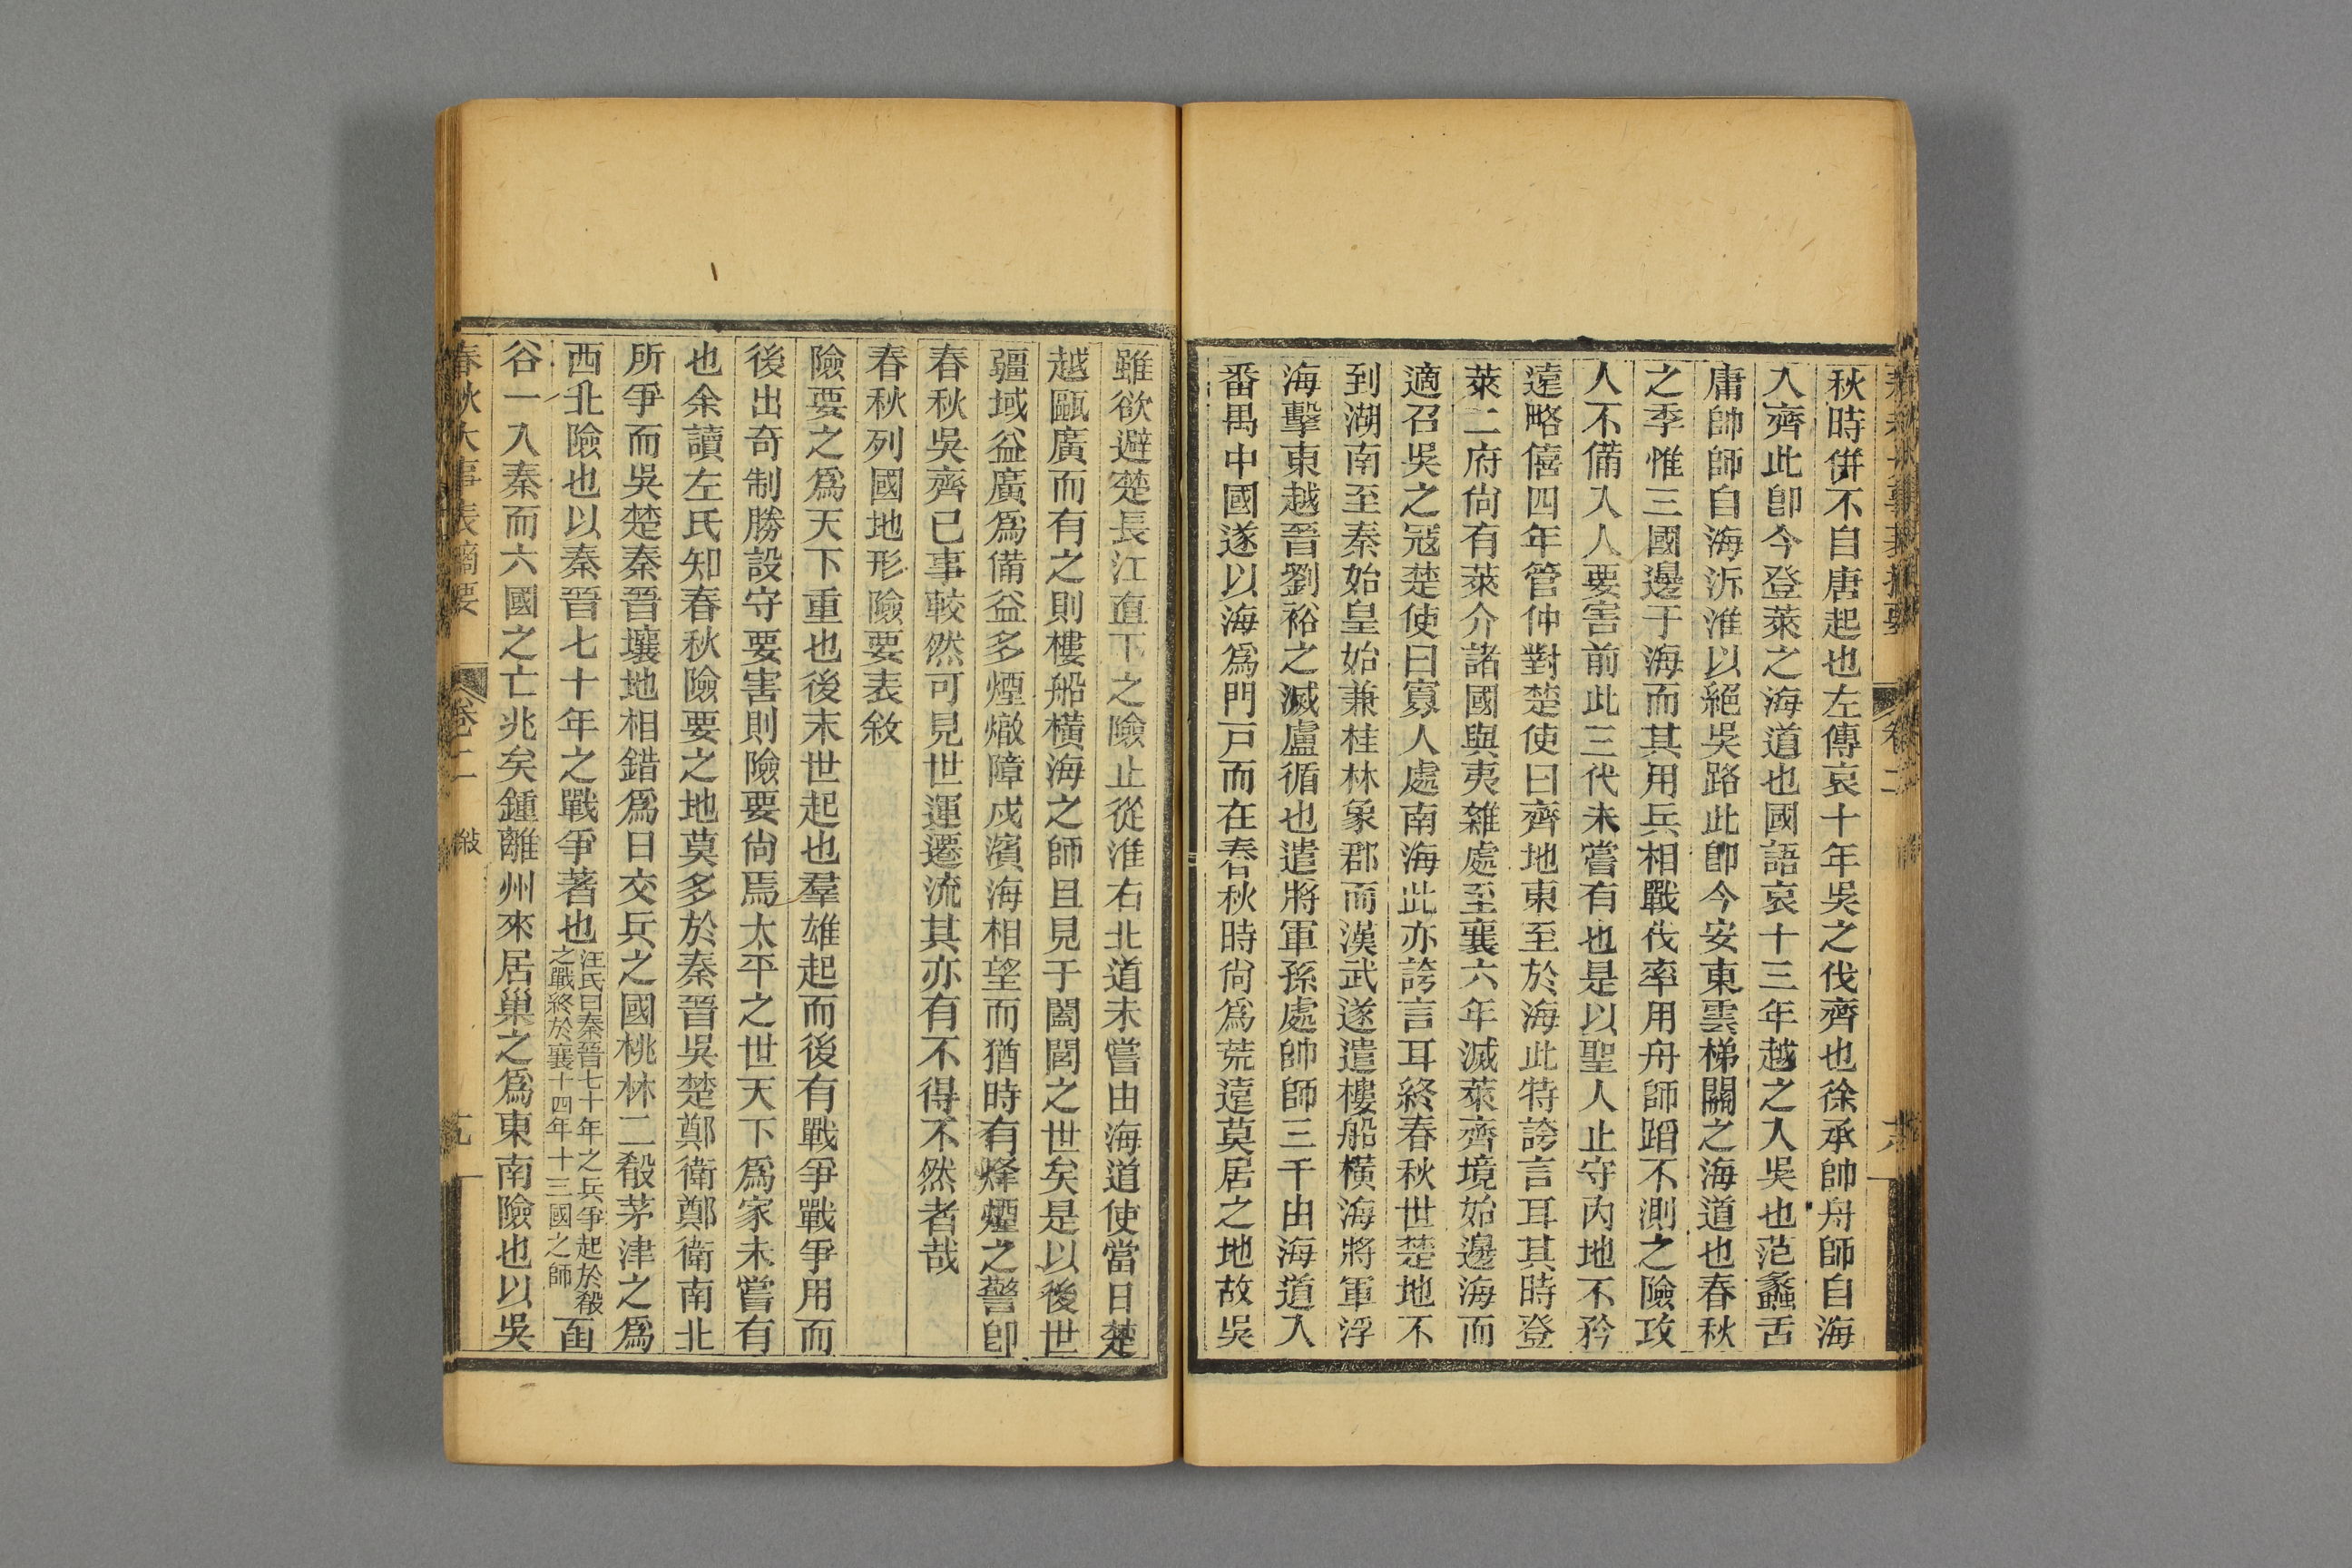 秋時併不自唐起也左傳哀十年吳之伐齊也徐承帥舟師自海
入齊此卽今登萊之海道也國語哀十三年越之入吳也范蠡舌
庸帥師自海泝淮以絕吳路此卽今安東雲梯關之海道也春秋
之季惟三國邊于海而其用兵相戰伐率用舟師蹈不測之險攻
人不備入人要害前此三代未嘗有也是以聖人止守內地不矜
遠略僖四年管仲對楚使曰齊地東至於海此特誇言耳其時登
萊二府尙有萊介諸國與夷雜處至襄六年滅萊齊境始邊海而
適召吳之冦楚使曰寡人處南海此亦誇言耳終春秋世楚地不
到湖南至秦始皇始兼桂林象郡而漢武遂遣樓船橫海將軍浮
海擊東越晉劉裕之滅盧循也遣將軍孫處帥師三千由海道入
番禺中國遂以海爲門戸而在春秋時尙爲荒遠莫居之地故吳
雖欲避楚長江直下之險止從淮右北道未嘗由海道使當日楚
越甌廣而有之則樓船橫海之師且見于闔閭之世矣是以後世
疆域益廣爲備益多煙燉障戍濱海相望而猶時有烽煙之警卽
春秋吳齊已事較然可見世運遷流其亦有不得不然者哉
春秋列國地形險要表敘
險要之爲天下重也後末世起也羣雄起而後有戰爭戰爭用而
後出奇制勝設守要害則險要尙焉太平之世天下爲家未嘗有
也余讀左氏知春秋險要之地莫多於秦晉吳楚鄭衛鄭衛南北
所爭而吳楚秦晉壤地相錯爲日交兵之國桃林二殽茅津之爲
西北險也以秦晉七十年之戰爭著也汪氏曰秦晉七十年之兵爭起於殽之戰終於襄十四年十三國之師函
谷一入秦而六國之亡兆矣鍾離州來居巢之爲東南險也以吳
春秋大事表摘要 卷二 敘 九